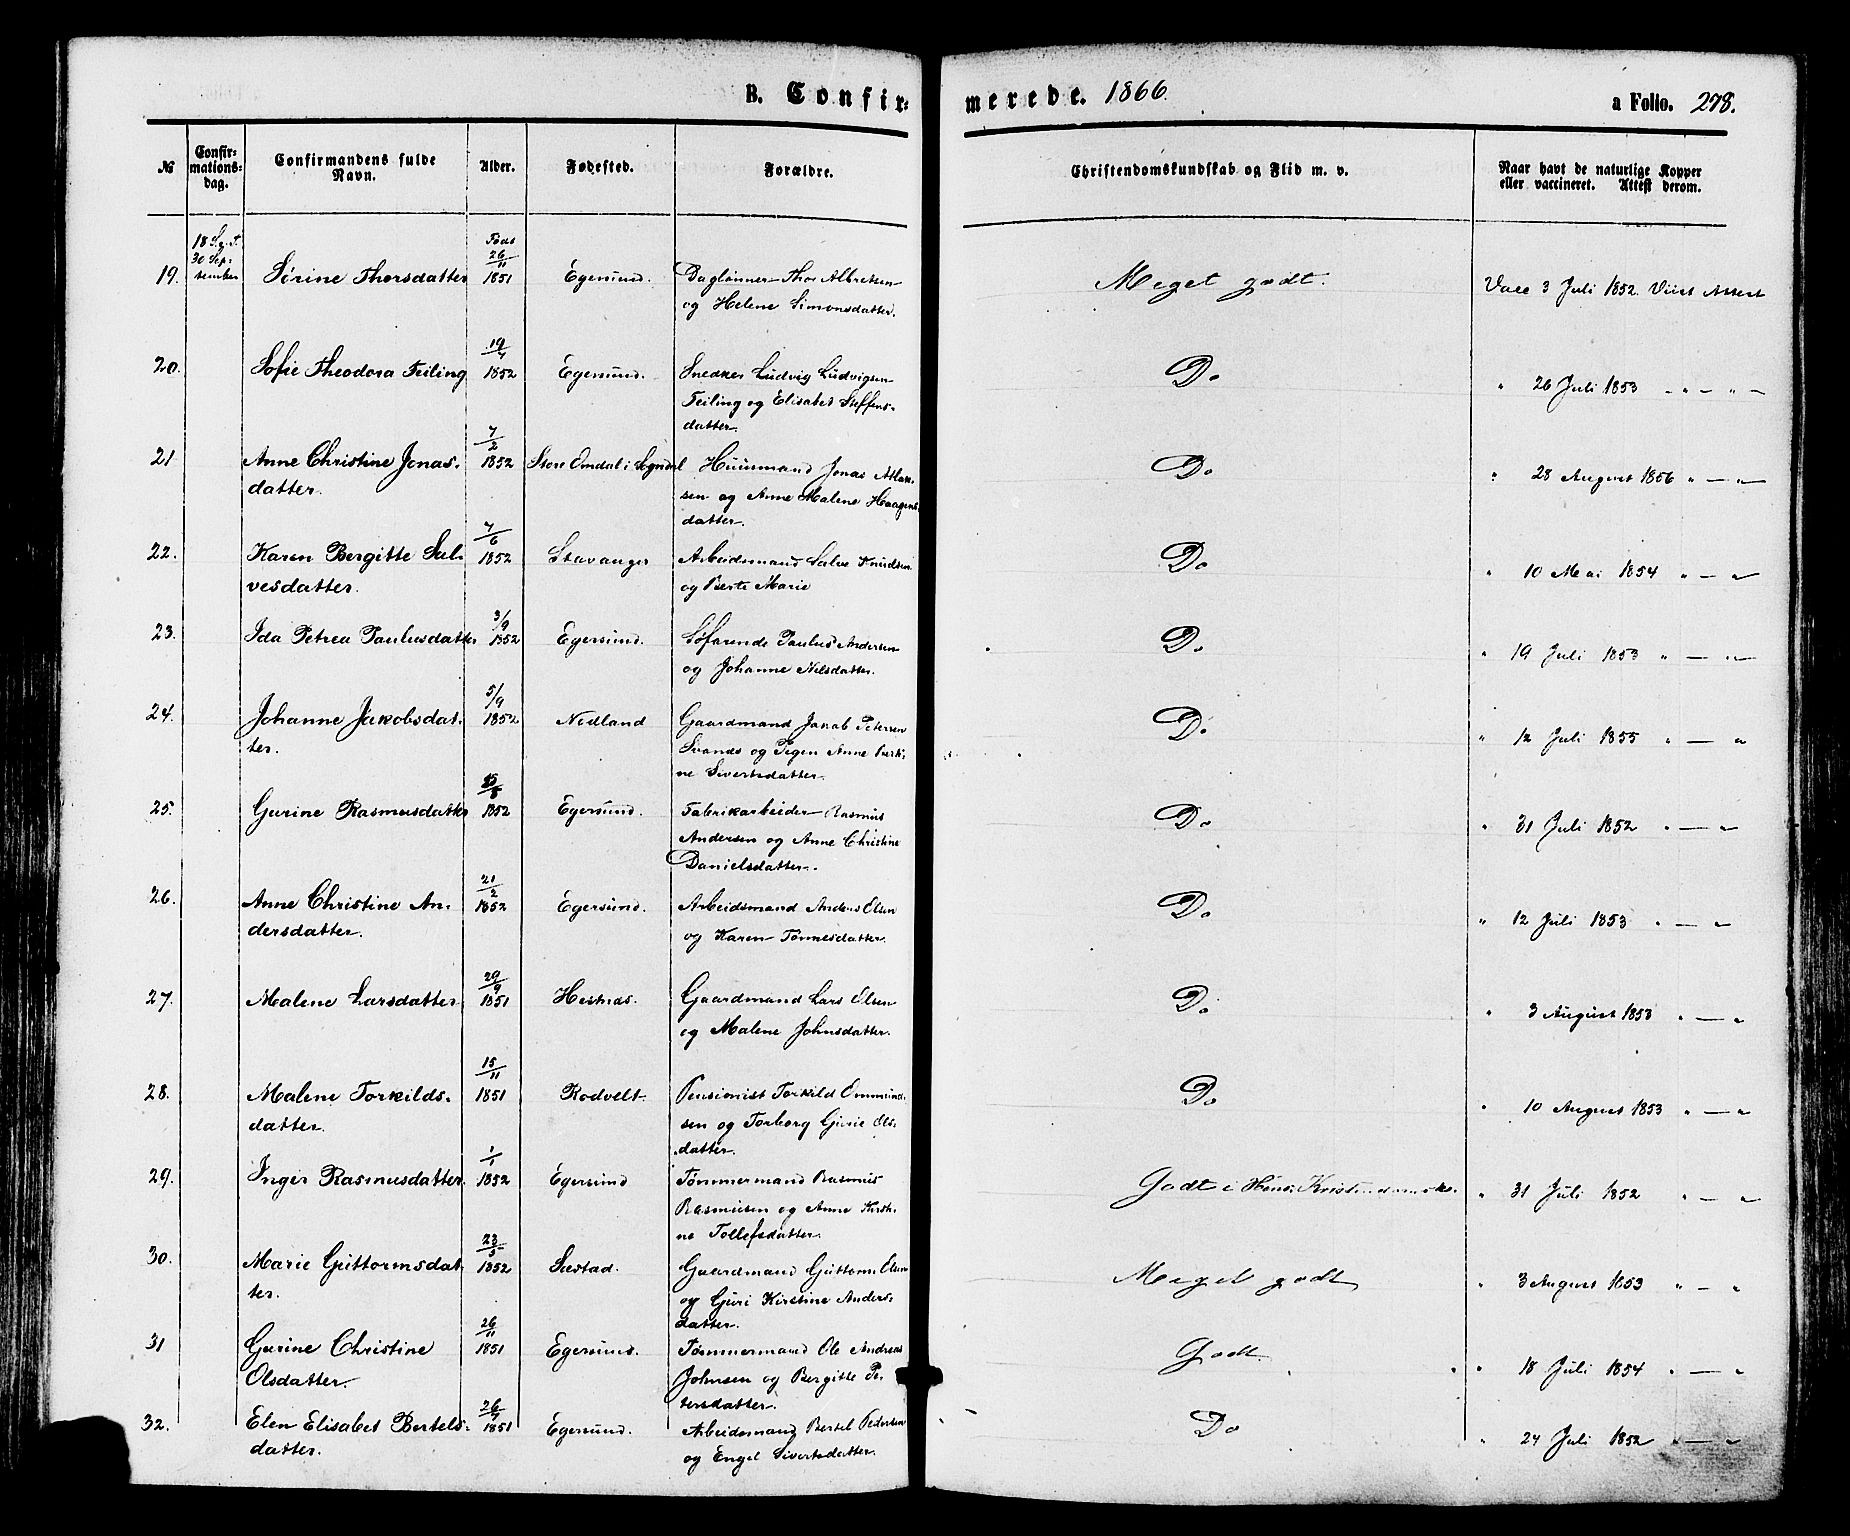 B. Confir-
merede. 1866.
a Folio. 278.
№ Confir-mations-dag. Confirmandens fulde Navn. Alder. Fødested. Forældre. Christendomskundskab og Flid m. v. Naar havt de naturlige Kopper eller vaccineret. Attest derom.
30 Sep-
tember
Født
19. Sirine Thorsdatter 26/11 1851 Egersund. Daglønner Thor Albretsen Meget godt. Vacc 3 Juli 1852. Viist Attest
og Helene Simonsdatter.
20. Sofie Theodora Feiling 19/4 1852 Egersund. Snedker Ludvig Ludvigsen Do " 26 Juli 1853 " — " —
Feiling og Elisabet Steffens-
datter.
21 Anne Christine Jonas- 7/2 1852 Store Omdal i Sogndal Huusmand Jonas Atlak- Do " 28 August 1856 " — "
datter. sen og Anne Malene Haagens-
datter.
22. Karen Bergitte Sal- 7/6 1852 Stavanger Arbeidsmand Salve Knudsen Do " 10 Mai 1854 " — "
vesdatter. og Berte Marie
23. Ida Petrea Paulusdatter 3/9 1852 Egersund. Søfarende Paulus Andersen Do " 19 Juli 1853 " — "
og Johanne Nilsdatter.
24. Johanne Jakobsdat- 5/9 1852 Nedland Gaardmand Jakob Petersen Do " 12 Juli 1855 " — "
ter. Svanes og Pigen Anne Kirsti-
ne Sivertsdatter.
25. Gurine Rasmusdatter 1852 Egersund. Fabrikarbeider Rasmus Do " 31 Juli 1852 " — "
Andersen og Anne Christine
Danielsdatter.
26. Anne Christine An- 21/2 1852 Egersund. Arbeidsmand Anders Olsen Do " 12 Juli 1853 " — "
dersdatter. og Karen Tønnesdatter.
27. Malene Larsdatter 29/9 1851 Hestnes. Gaardmand Lars Olsen Do " 3 August 1853 " — "
og Malene Johnsdatter.
28. Malene Torkilds- 15/11 1851 Rodvelt Pensionist Torkild Ommund- Do " 10 August 1853 " — "
datter. sen og Torborg Gurie Ols-
datter.
29. Inger Rasmusdatter 1/1 1852 Egersund Tømmermand Rasmus Godt i Hens. Kristendomsk. " 31 Juli 1852 " — "
Rasmusen og Anne Kirsti-
ne Tollefsdatter.
30. Marie Guttormsdat- 23/5 1852 Sæstad. Gaardmand Guttorm Olsen Meget godt " 3 August 1853 " — "
ter. og Guri Kirstine Anders-
datter.
31 Gurine Christine 26/11 1851 Egersund. Tømmermand Ole Andreas Godt. " 18 Juli 1854 " — "
Olsdatter. Johnsen og Bergitte Pe-
tersdatter.
32. Elen Elisabet Bertels- 1851 Egersund. Arbeidsmand Bertel Pedersen Do " 24 Juli 1852 " — "
datter. og Engel Sivertsdatter.